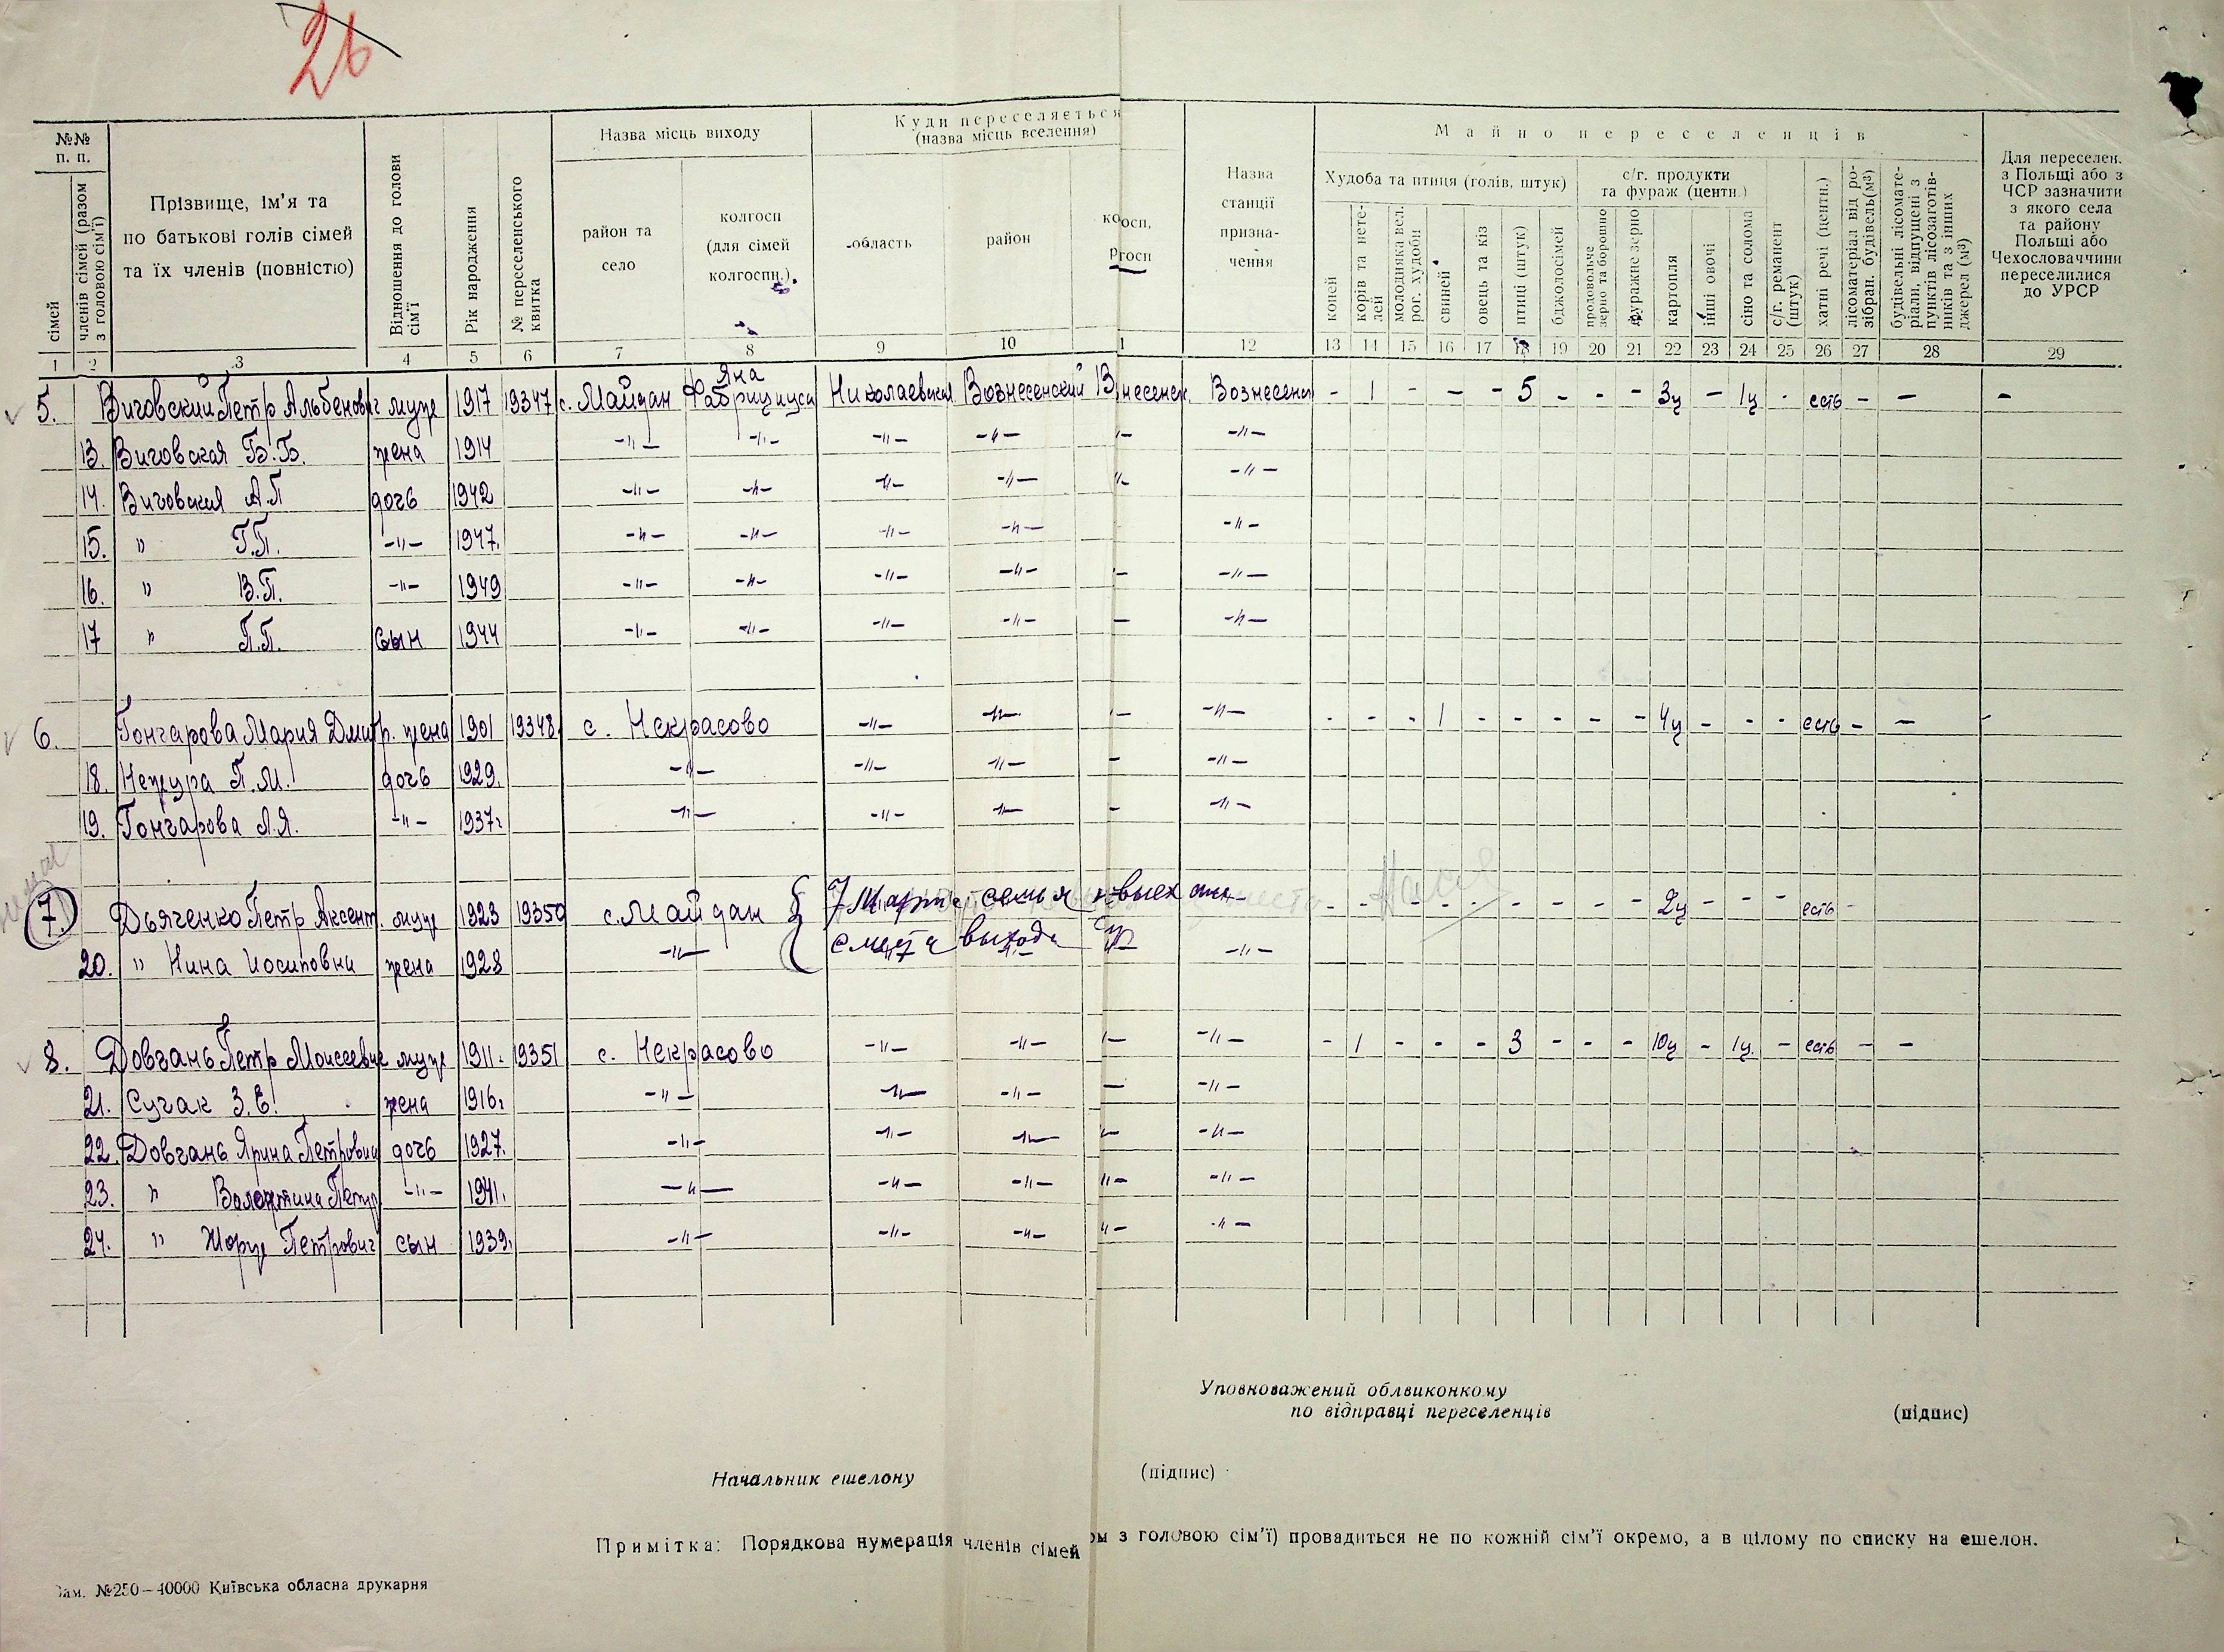 26
№№ п. п.
сімей
членів сімей (разом з головою сім'ї)
Прізвище, ім'я та по батькові голів сімей та їх членів (повністю)
Відношення до голови сім'ї
Рік народження
№ переселенського квитка
Назва місць виходу
район та село
колгосп (для сімей колгоспн.)
Куди переселяється (назва місць вселення)
область
район
Назва станції призна-чення
Майно переселенців
Худоба та птиця (голів, штук)
коней
корів та нете-лей
молодняка вел. рог. худоби
свиней
овець та кіз
птиці (штук)
бджолосімей
с/г. продукти та фураж (центн.)
продовольче зерно та борошно
фуражне зерно
картопля
інші овочі
сіно та солома
с/г. реманент (штук)
хатні речі (центн.)
лісоматеріал від ро-зібран. будівель(м³)
будівельні лісомате-ріали, відпущені з пунктів лісозаготів-ників та з інших джерел (м³)
Для переселен. з Польщі або з ЧСР зазначити з якого села та району Польщі або Чехословаччини переселилися до УРСР
1 2 3 4 5 6 7 8 9 10 1 12 13 14 15 16 17 18 19 20 21 22 23 24 25 26 27 28 29
5. Виговский Петр Альбенович муж 1917 19347 с. Майдан Яна Фабрициуса Николаевская Вознесенский Вознесенск - 1 - - - 5 - - - 3ц - 1ц - есть - - -
13. Виговская Б.Б. жена 1914 -"- -"- -"- -"- "- -"-
14. Виговская А.П дочь 1942 -"- -"- -"- -"- "- -"-
15. " Г.П. -"- 1947. -"- -"- -"- -"- -"-
16. " В.П. -"- 1949 -"- -"- -"- -"- "- -"-
17 " П.П. сын 1944 -"- -"- -"- -"- - -"-
6. Гончарова Мария Дмитр. жена 1901 19348. с. Некрасово -"- -"- "- -"- - - - 1 - - - - - 4ц - - - есть - - -
18. Нежура П.М. дочь 1929. -"- -"- -"- - -"-
19. Гончарова Л.Я. -"- 1937г -"- -"- -"- - -"-
7. Дьяченко Петр Аксент. муж 1923 19350 с. Майдан 7 марта семья - - - - - - - - - 2ц - - - есть -
с места выхода
20. " Нина Иосиповна жена 1928 -"- -"-
8. Довгань Петр Моисеевич муж 1911. 19351 с. Некрасово -"- -"- "- -"- - 1 - - - 3 - - - 10ц - 1ц. - есть - -
21. Сучак З.Е. жена 1916г -"- -"- -"- - -"-
22. Довгань Ярина Петровна дочь 1927. -"- -"- -"- "- -"-
23. " Валентина Петр -"- 1941. -"- -"- -"- "- -"-
24. " Жорж Петрович сын 1939. -"- -"- -"- "- -"-
Уповноважений облвиконкому
по відправці переселенців (підпис)
Начальник ешелону (підпис)
Примітка: Порядкова нумерація членів сімей ом з головою сім'ї) провадиться не по кожній сім'ї окремо, а в цілому по списку на ешелон.
Зам. №250—40000 Київська обласна друкарня